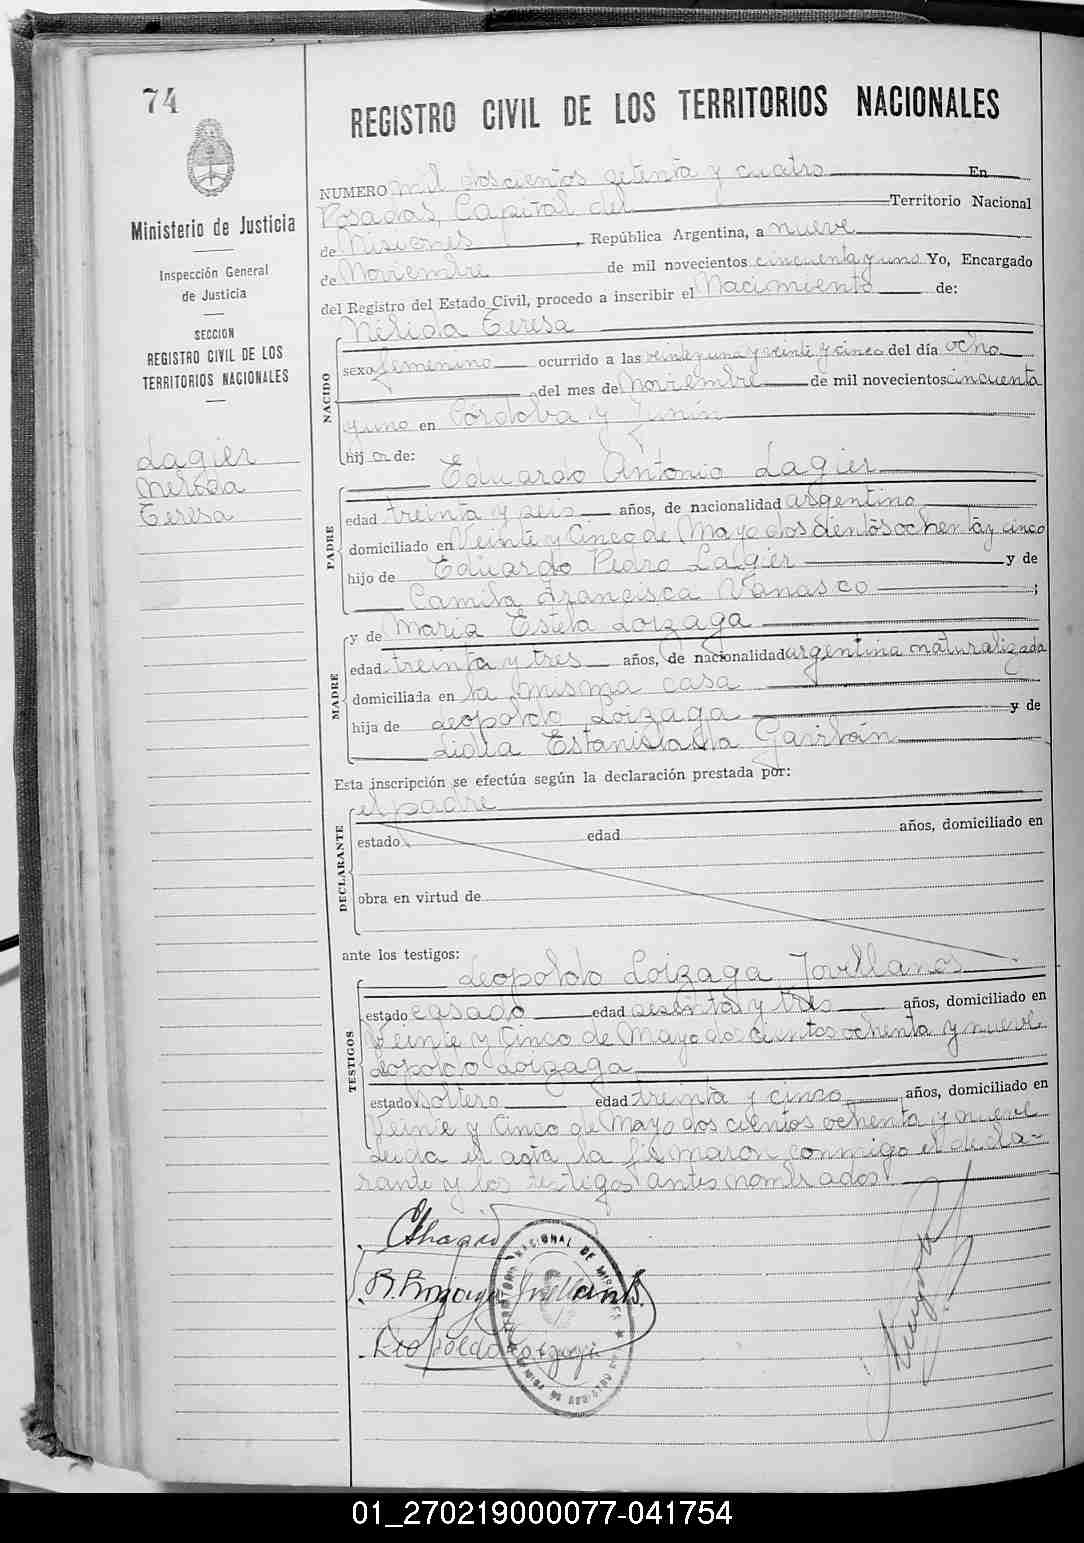 74
Ministerio de Justicia
Inspección General
de Justicia
SECCION
REGISTRO CIVIL DE LOS
TERRITORIOS NACIONALES
Lagier
Nelida
Teresa
REGISTRO CIVIL DE LOS TERRITORIOS NACIONALES
NUMERO mil doscientos setenta y cuatro En
Posadas, Capital del Territorio Nacional
de Misiones, República Argentina, a nueve
de Noviembre de mil novecientos cincuenta y uno Yo, Encargado
del Registro del Estado Civil, procedo a inscribir el Nacimiento de:
NACIDO
Nélida Teresa
sexo femenino ocurrido a las veinte y una y veinte y cinco del día ocho
del mes de Noviembre de mil novecientos cincuenta
y uno en Córdoba y Junín
hij a de:
PADRE
Eduardo Antonio Lagier
edad treinta y seis años, de nacionalidad argentino
domiciliado en Veinte y Cinco de Mayo dos cientos ochenta y cinco
hijo de Eduardo Pedro Lagier y de
Camila Francisca Vanasco ;
MADRE
y de María Estela Loizaga
edad treinta y tres años, de nacionalidad argentina naturalizada
domiciliada en la misma casa
hija de Leopoldo Loizaga y de
Lidia Estanislada Garibán
Esta inscripción se efectúa según la declaración prestada por:
DECLARANTE
el padre
estado edad años, domiciliado en
obra en virtud de
ante los testigos:
TESTIGOS
Leopoldo Loizaga Jovellanos
estado casado edad sesenta y tres años, domiciliado en
Veinte y Cinco de Mayo dos cientos ochenta y nueve
Leopoldo Loizaga
estado soltero edad treinta y cinco años, domiciliado en
Veinte y Cinco de Mayo dos cientos ochenta y nueve
Leida el acta, la firmaron conmigo el decla-
rante y los testigos antes nombrados.
Leopoldo Loizaga
01_270219000077-041754